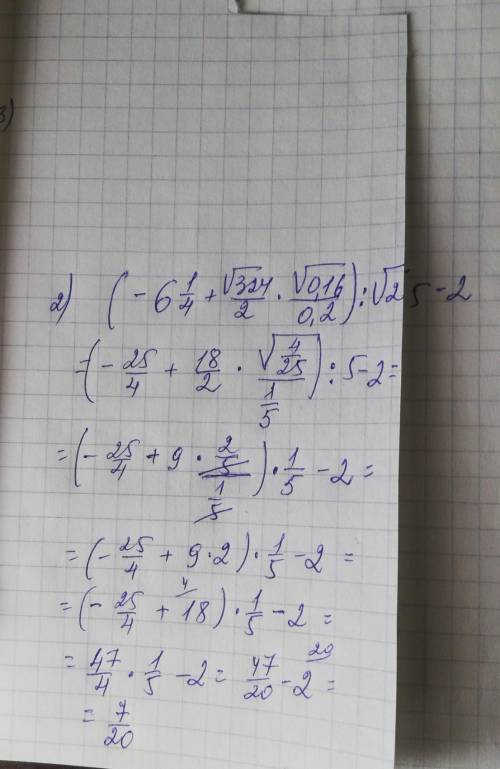 3)
2) (-6 1/4 + √324/2 · √0,16/0,2) : √25 - 2
=(-25/4 + 18/2 · √(4/25)/(1/5)) : 5-2=
=(-25/4 + 9 · (2/5)/(1/5)) · 1/5 - 2 =
=(-25/4 + 9·2) · 1/5 - 2 =
=(-25/4 + 18 4/) · 1/5 - 2 =
= 47/4 · 1/5 - 2 = 47/20 - 2 20/ =
= 7/20